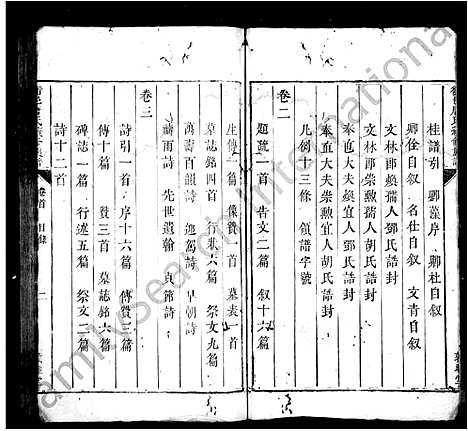 桂譜引 卿藻序 卿杜自叙
卿佺自叙 名仕自叙 文青自叙
文林郎煥孺人鄧氏誥封
文林郎崇勲孺人胡氏誥封
奉直大夫煥宜人鄧氏誥封
奉直大夫崇勲宜人胡氏誥封
凡例十三條 領譜字號
卷二
題疏一首 告文二篇 叙十六篇
生傳二篇 像贊一首 墓表一首
墓誌銘四首 行狀六篇 祭文九篇
禱雨詩 迎駕詩 早朝詩
先世遺翰 貞節詩
卷三
詩引一首 序十六篇 傳贊三篇
傳十篇 贊三首 墓誌銘六篇
碑誌一篇 行述五篇 祭文二篇
詩十二首
卷首 目錄 二
familysearch international